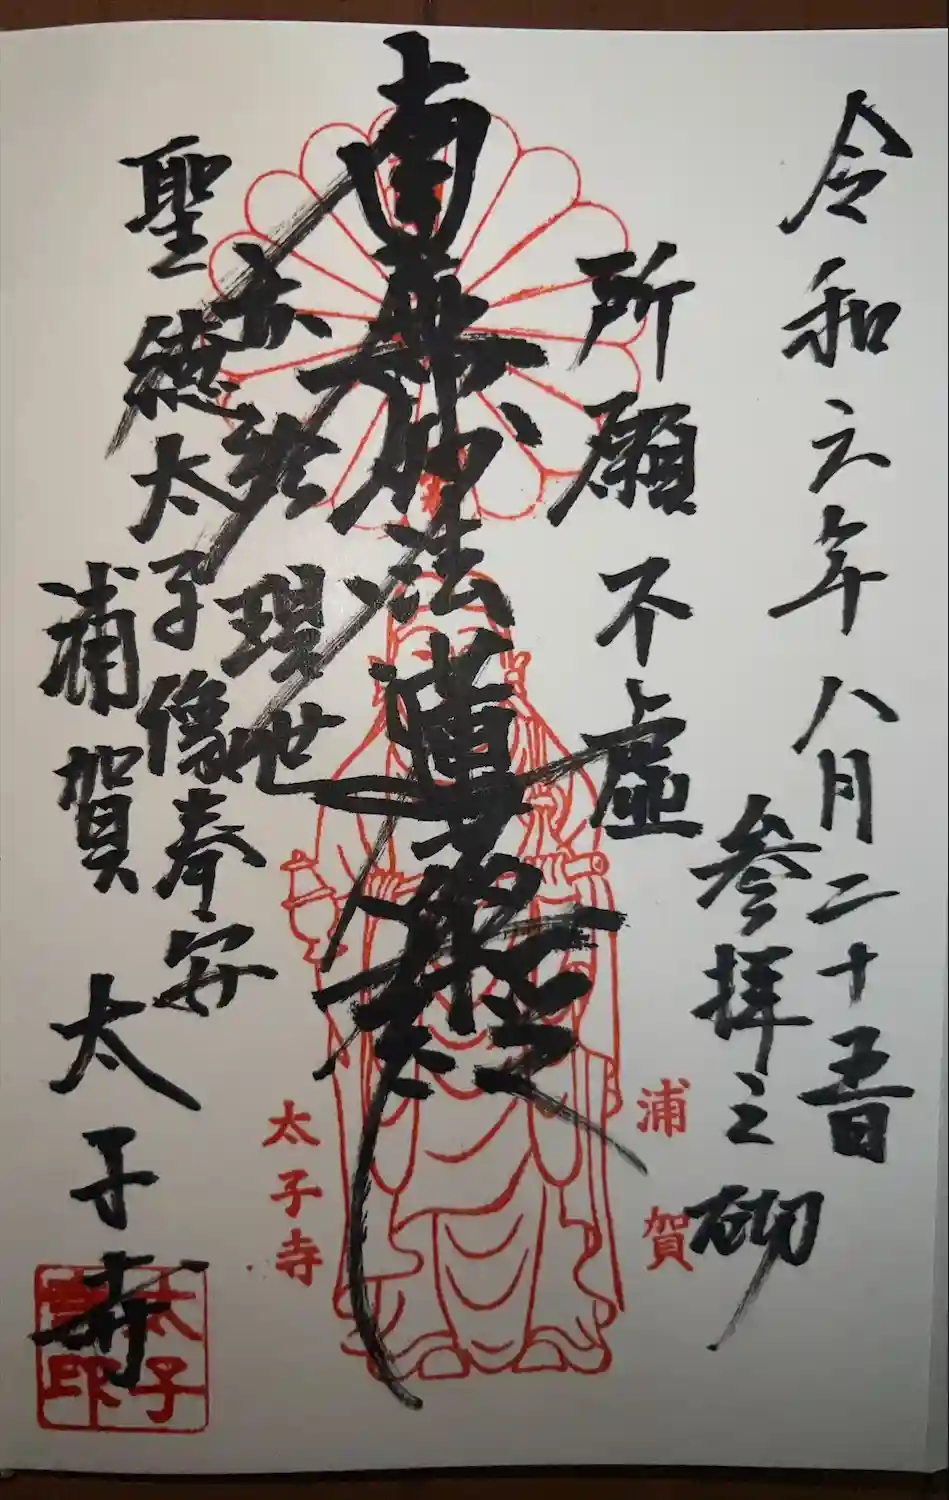 令和六年八月二十五日
参拝之砌
所願不虚
南無妙法蓮華経
亦於現世
聖徳太子像奉安
浦賀 太子寺
浦賀
太子寺
太子
寺印